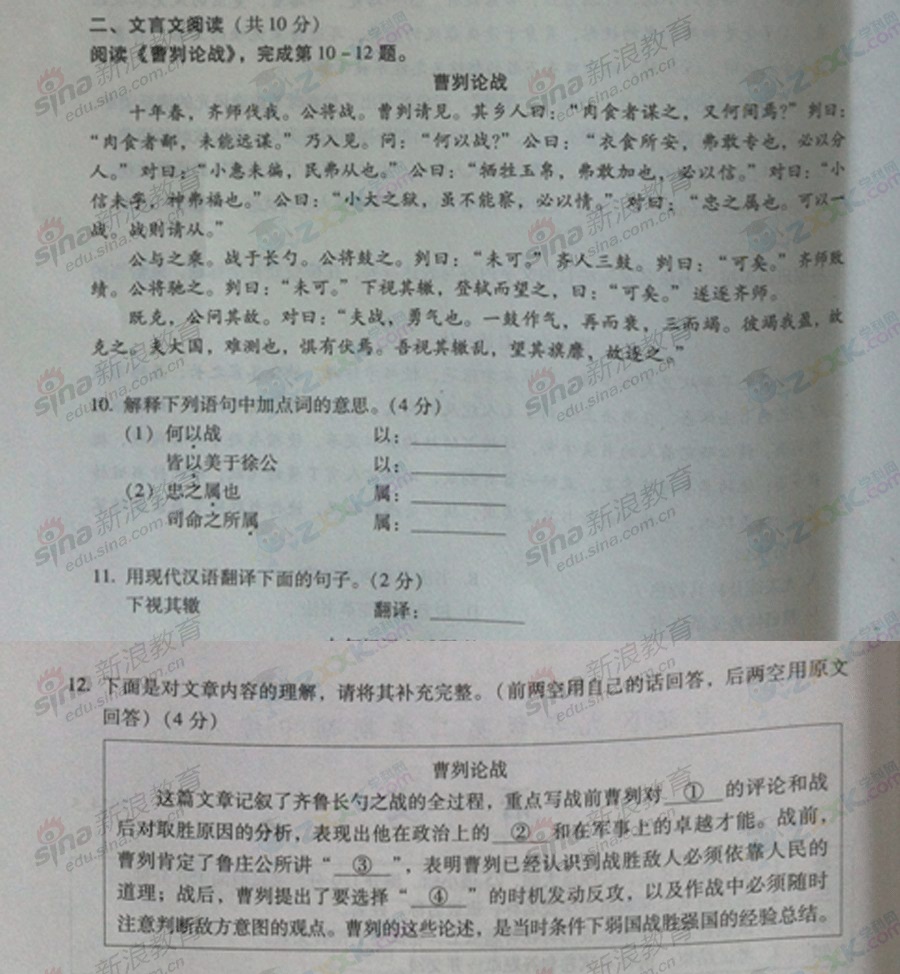 二、文言文阅读（共10分）
阅读《曹刿论战》，完成第10－12题。
曹刿论战
十年春，齐师伐我。公将战。曹刿请见。其乡人曰：“肉食者谋之，又何间焉？”刿曰：
“肉食者鄙，未能远谋。”乃入见。问：“何以战？”公曰：“衣食所安，弗敢专也，必以分
人。”对曰：“小惠未徧，民弗从也。”公曰：“牺牲玉帛，弗敢加也，必以信。”对曰：“小
信未孚，神弗福也。”公曰：“小大之狱，虽不能察，必以情。”对曰：“忠之属也。可以一
战。战则请从。”
公与之乘。战于长勺。公将鼓之。刿曰：“未可。”齐人三鼓。刿曰：“可矣。”齐师败
绩。公将驰之。刿曰：“未可。”下视其辙，登轼而望之，曰：“可矣。”遂逐齐师。
既克，公问其故。对曰：“夫战，勇气也。一鼓作气，再而衰，三而竭。彼竭我盈，故
克之。夫大国，难测也，惧有伏焉。吾视其辙乱，望其旗靡，故逐之。”
10. 解释下列语句中加点词的意思。（4分）
（1）何以战 以：
皆以美于徐公 以：
（2）忠之属也 属：
司命之所属 属：
11. 用现代汉语翻译下面的句子。（2分）
下视其辙 翻译：
12. 下面是对文章内容的理解，请将其补充完整。（前两空用自己的话回答，后两空用原文
回答）（4分）
曹刿论战
这篇文章记叙了齐鲁长勺之战的全过程，重点写战前曹刿对 ① 的评论和战
后对取胜原因的分析，表现出他在政治上的 ② 和在军事上的卓越才能。战前，
曹刿肯定了鲁庄公所讲“ ③ ”，表明曹刿已经认识到战胜敌人必须依靠人民的
道理；战后，曹刿提出了要选择“ ④ ”的时机发动反攻，以及作战中必须随时
注意判断敌方意图的观点。曹刿的这些论述，是当时条件下弱国战胜强国的经验总结。
sina 新浪教育
edu.sina.com.cn
ZXXK.com 学科网